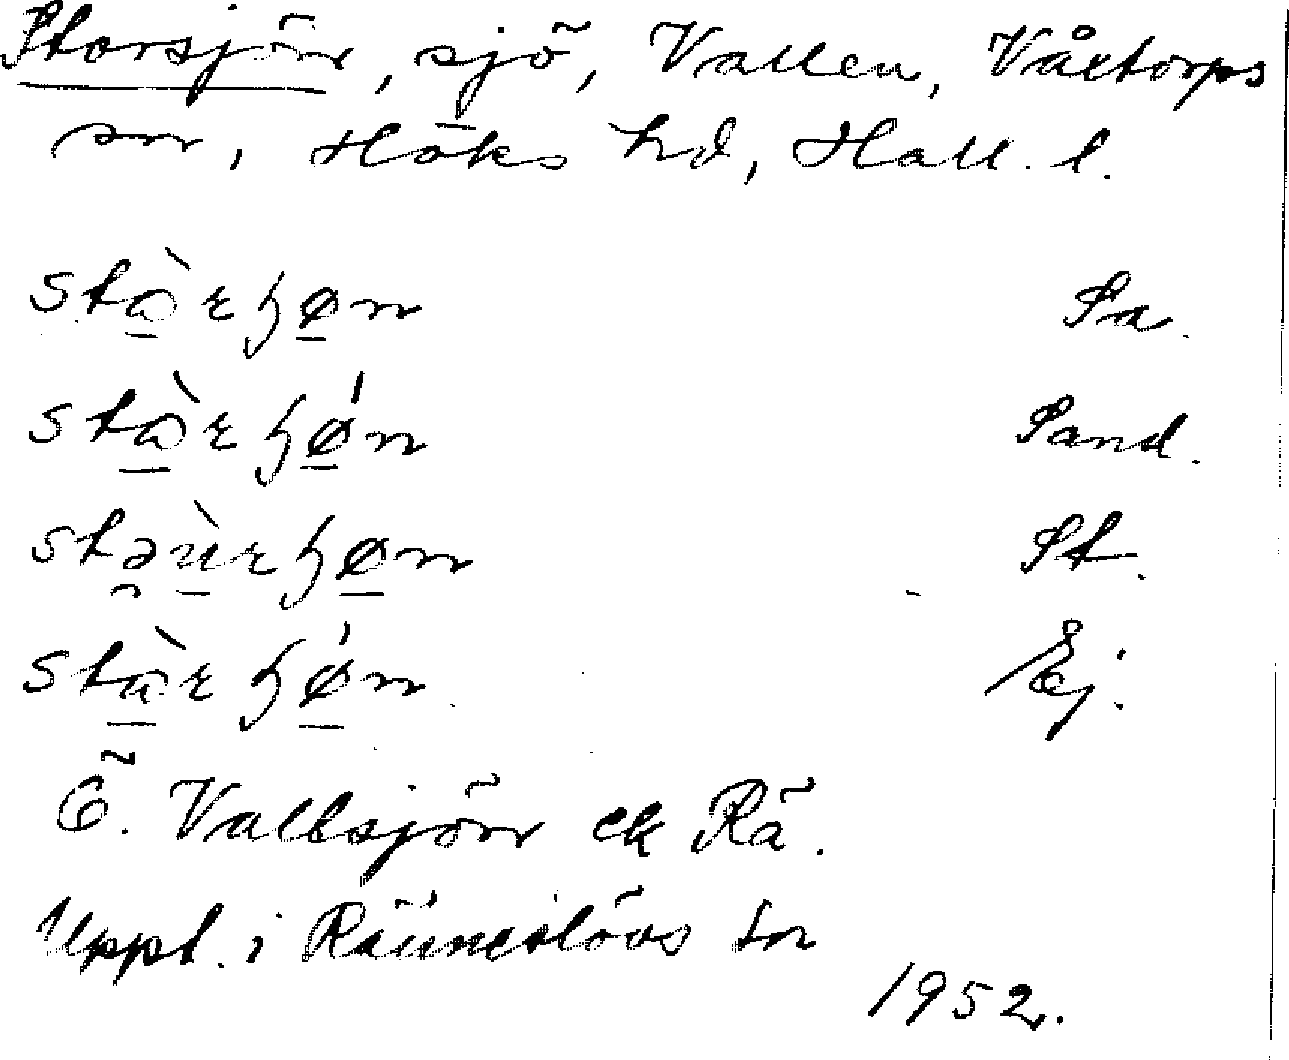 Storsjön, sjö, Vallen, Våxtorps
sn, Höks hd, Hall. l.
stàrɧøn Sa.
stàrɧǿn Sand.
stəùrɧøn St.
stàrɧǿn Ej.
Ö. Vallsjön ek Rä.
Uppt. i Ränneslövs sn
1952.